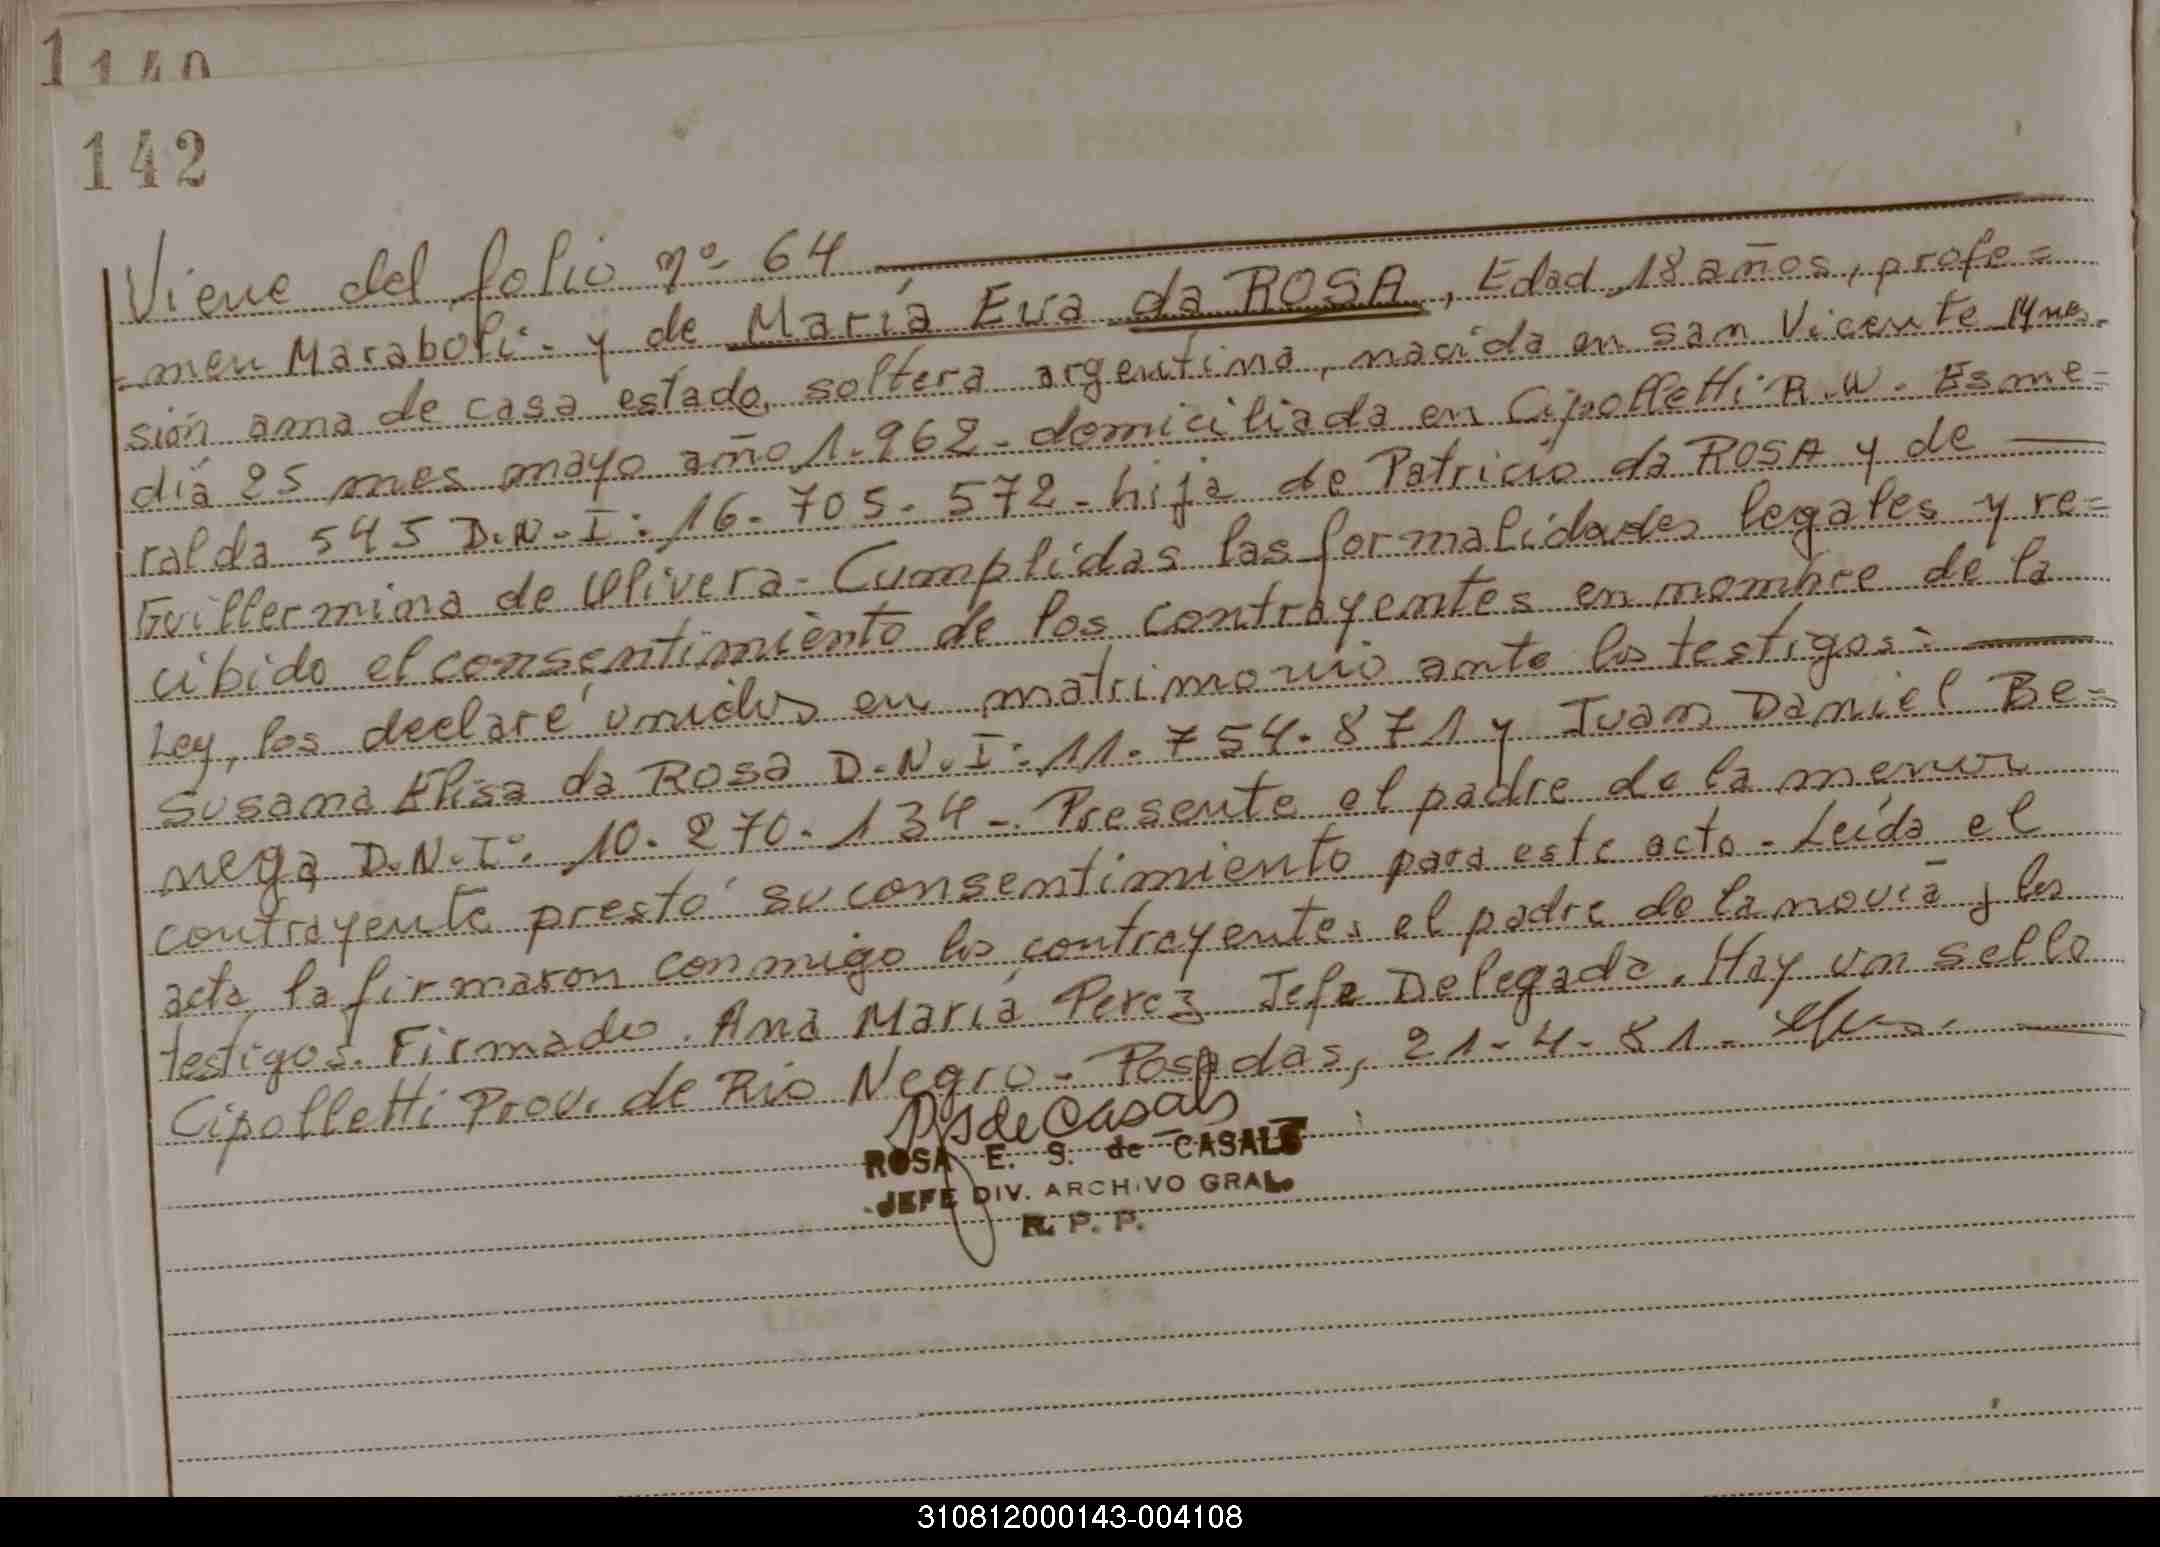 1140
142
Viene del folio nº 64
=men Maraboli - y de María Eva da ROSA, Edad 18 años, profe=
sión ama de casa estado, soltera argentina, nacida en san Vicente Mnes.
día 25 mes mayo año 1.962 - domiciliada en Cipolletti R.N. Esme=
ralda 545 D.N.I: 16.705.572 - hija de Patricio da ROSA y de
Guillermina de Olivera - Cumplidas las formalidades legales y re=
cibido el consentimiento de los contrayentes en nombre de la
Ley, los declaré unidos en matrimonio ante los testigos:
Susana Elisa da Rosa D.N.I: 11.754.871 y Juan Daniel Be=
nega D.N.I: 10.270.134 - Presente el padre de la menor
contrayente prestó su consentimiento para este acto - Leída el
acta la firmaron conmigo los contrayentes el padre de la novia y los
testigos. Firmado. Ana María Perez Jefe Delegada. Hay un sello
Cipolletti Prov. de Rio Negro - Posadas, 21-4-81 -
RSdeCasals
ROSA E. S. de CASALS
JEFE DIV. ARCHIVO GRAL.
R. P. P.
310812000143-004108